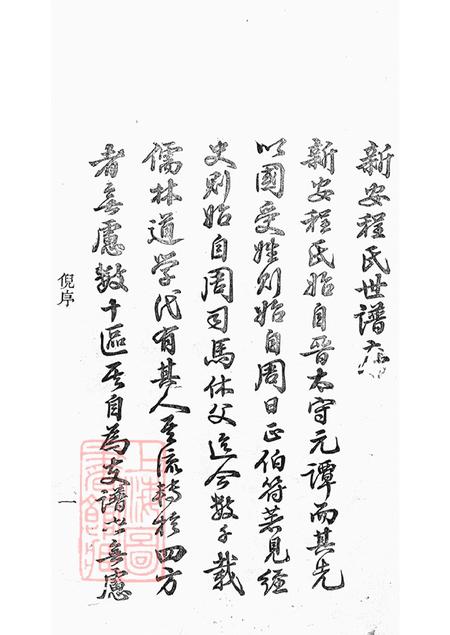 新安程氏世譜序
新安程氏始自晉太守元譚而其先
以國受姓則始自周曰正伯符若見經
史則始自周司馬休父迄今數千載
儒林道学代有其人至流轉於四方
者無慮數十區其自為支譜亦無慮
倪序
一
上海圖書館藏